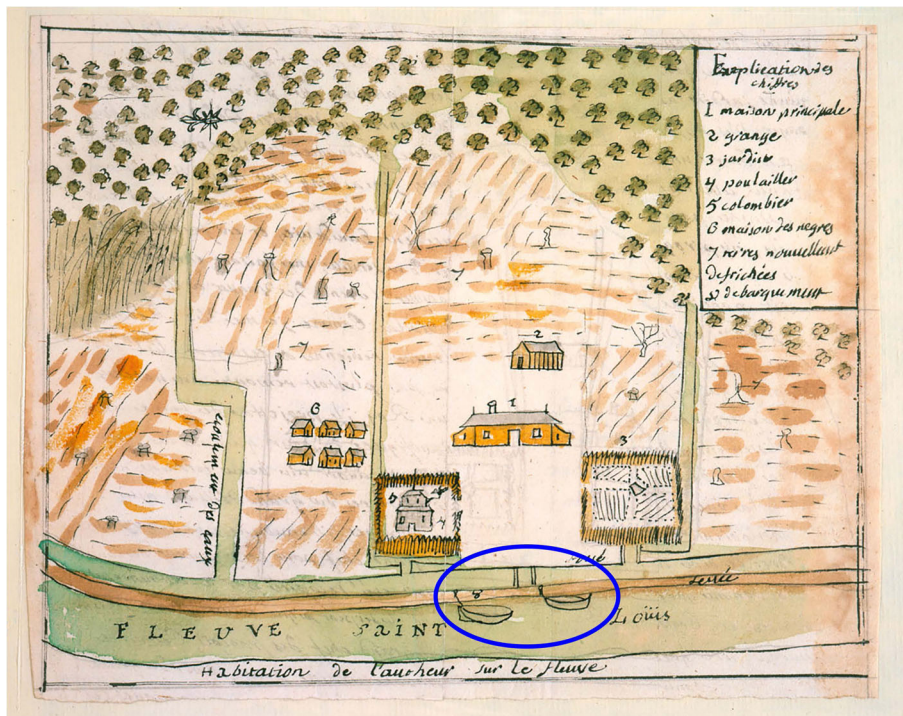 Explication des
chiffres
1 maison principale
2 grange
3 jardin
4 poulailler
5 colombier
6 maison des negres
7 terres nouvellemt
defrichées
8 debarquement
2
7
7
7
6
1
3
5
4
8
Levée
Levée
FLEUVE SAINT Loüis
Habitation de l'autheur sur le fleuve